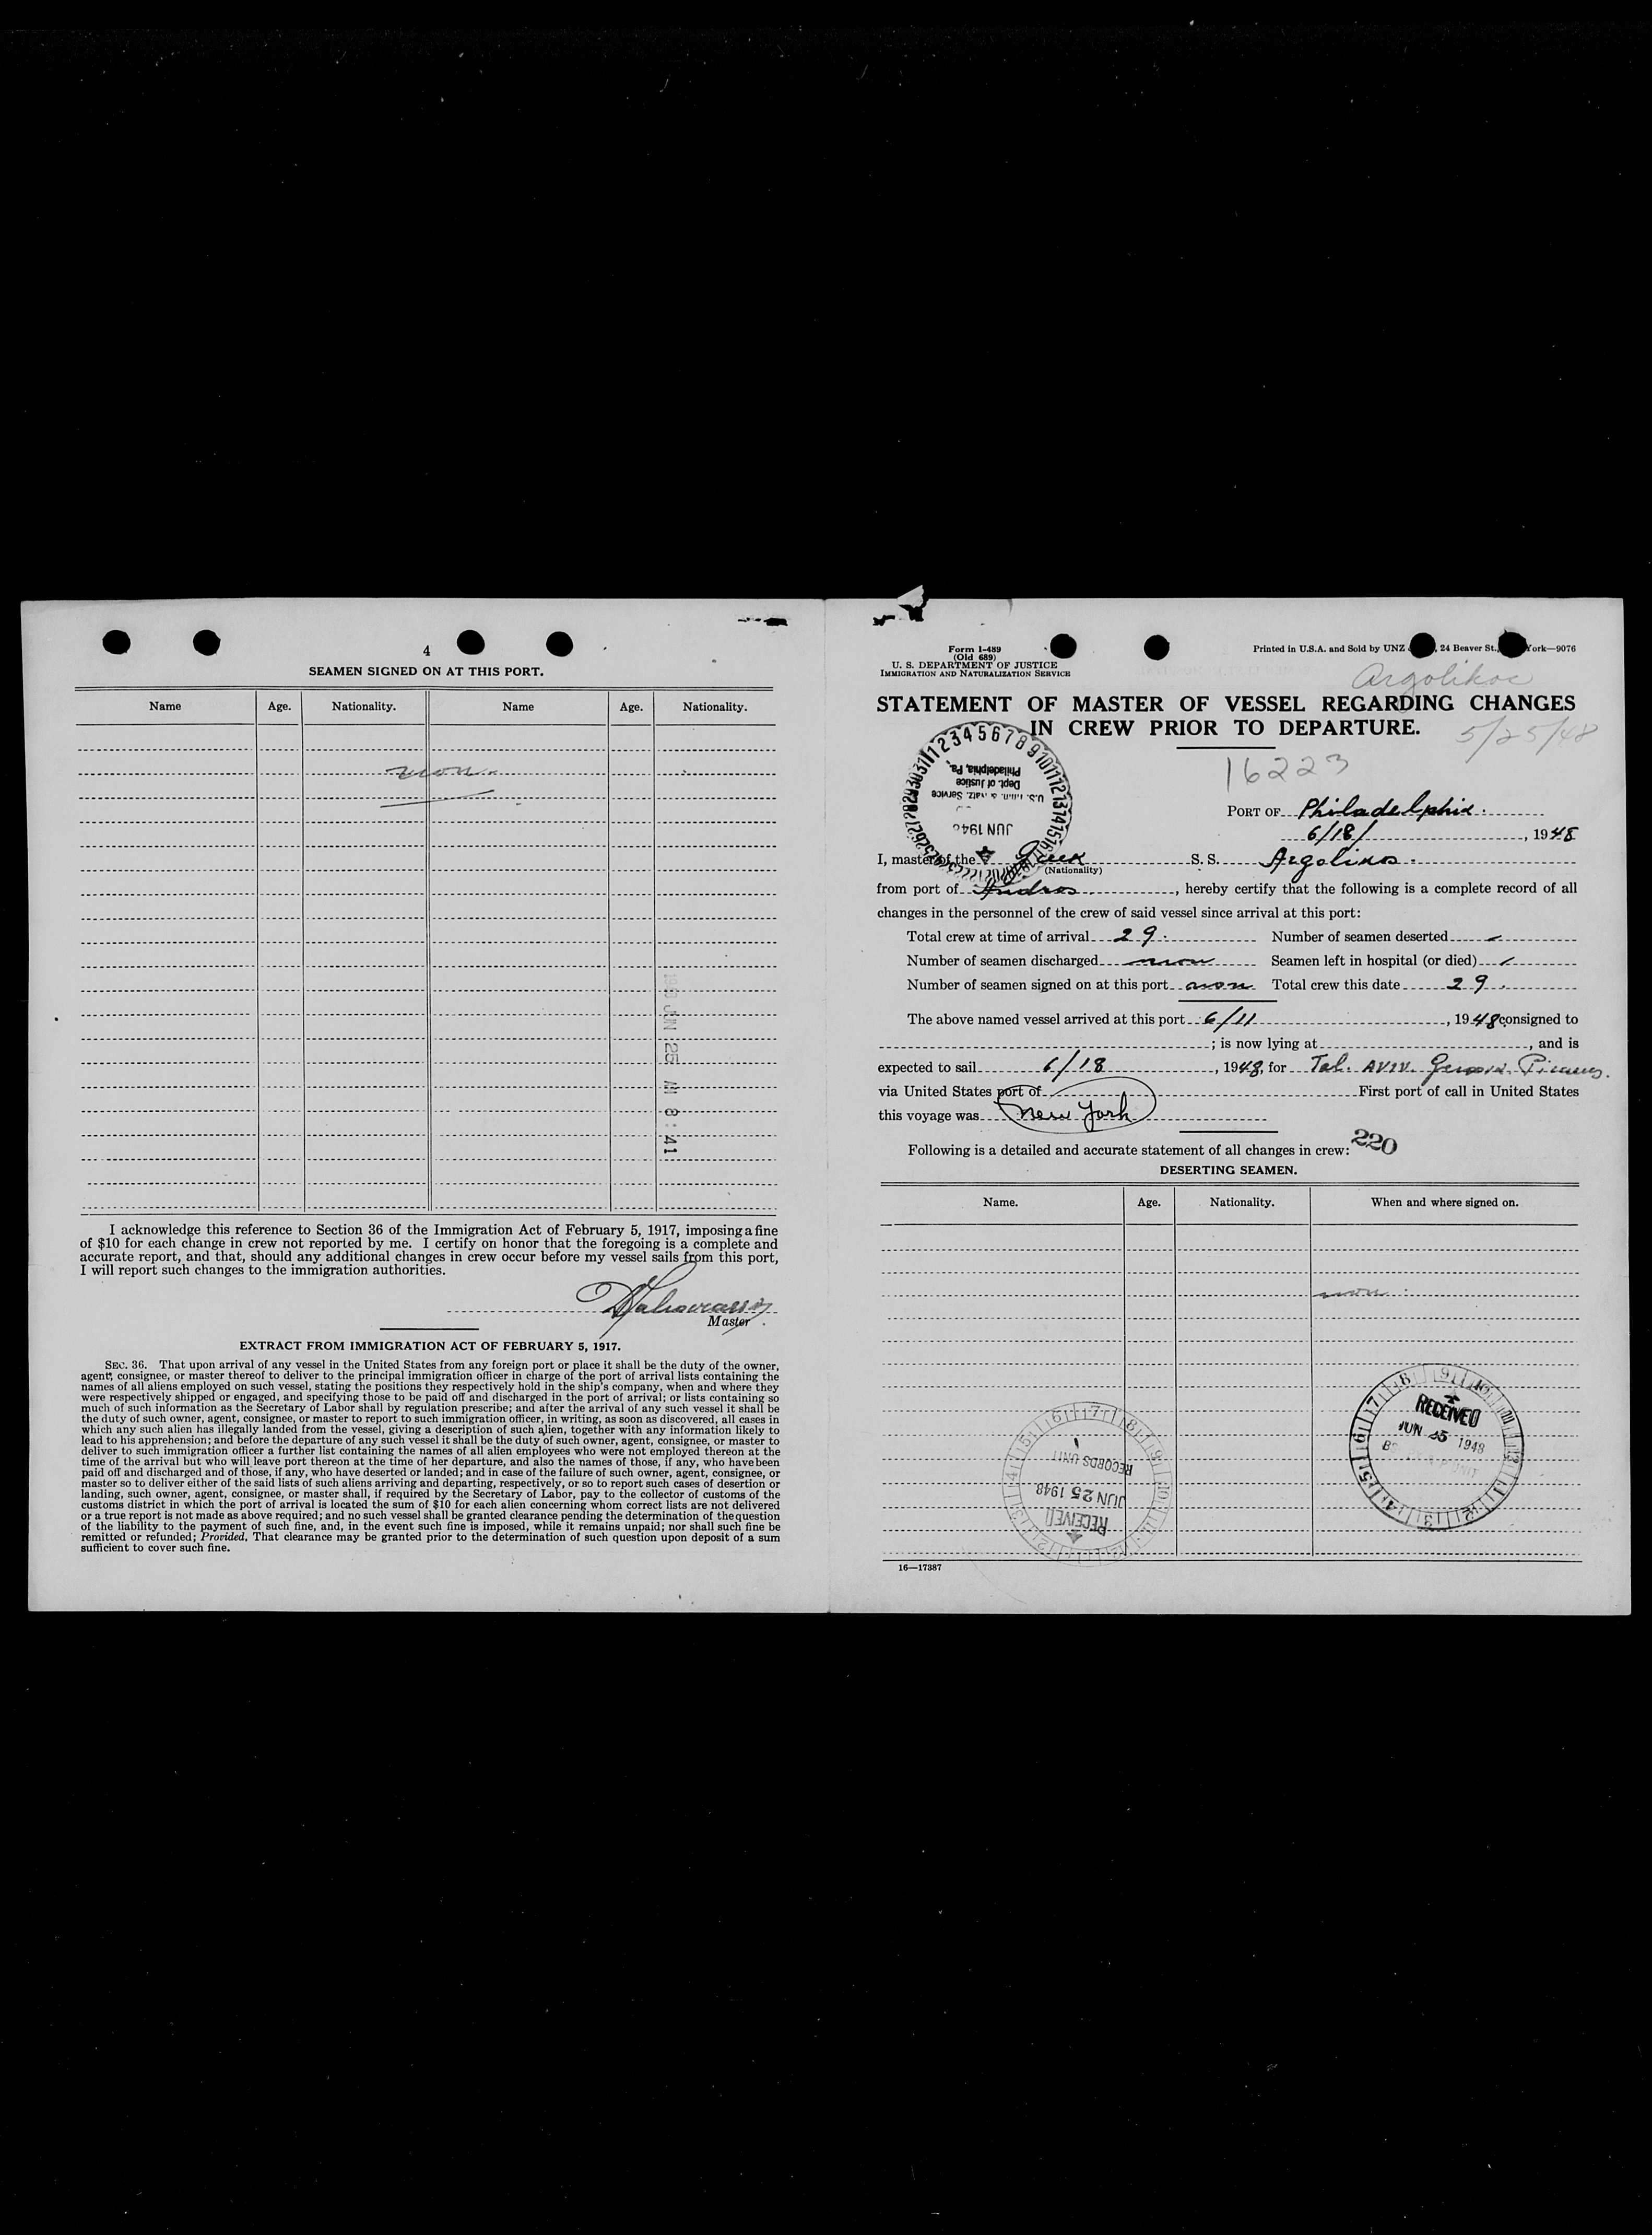 4
SEAMEN SIGNED ON AT THIS PORT.
Name Age. Nationality. Name Age. Nationality.
non
JUN 25 AM 8:41
I acknowledge this reference to Section 36 of the Immigration Act of February 5, 1917, imposing a fine
of $10 for each change in crew not reported by me. I certify on honor that the foregoing is a complete and
accurate report, and that, should any additional changes in crew occur before my vessel sails from this port,
I will report such changes to the immigration authorities.
Master
EXTRACT FROM IMMIGRATION ACT OF FEBRUARY 5, 1917.
SEC. 36. That upon arrival of any vessel in the United States from any foreign port or place it shall be the duty of the owner,
agent, consignee, or master thereof to deliver to the principal immigration officer in charge of the port of arrival lists containing the
names of all aliens employed on such vessel, stating the positions they respectively hold in the ship's company, when and where they
were respectively shipped or engaged, and specifying those to be paid off and discharged in the port of arrival; or lists containing so
much of such information as the Secretary of Labor shall by regulation prescribe; and after the arrival of any such vessel it shall be
the duty of such owner, agent, consignee, or master to report to such immigration officer, in writing, as soon as discovered, all cases in
which any such alien has illegally landed from the vessel, giving a description of such alien, together with any information likely to
lead to his apprehension; and before the departure of any such vessel it shall be the duty of such owner, agent, consignee, or master to
deliver to such immigration officer a further list containing the names of all alien employees who were not employed thereon at the
time of the arrival but who will leave port thereon at the time of her departure, and also the names of those, if any, who have been
paid off and discharged and of those, if any, who have deserted or landed; and in case of the failure of such owner, agent, consignee, or
master so to deliver either of the said lists of such aliens arriving and departing, respectively, or so to report such cases of desertion or
landing, such owner, agent, consignee, or master shall, if required by the Secretary of Labor, pay to the collector of customs of the
customs district in which the port of arrival is located the sum of $10 for each alien concerning whom correct lists are not delivered
or a true report is not made as above required; and no such vessel shall be granted clearance pending the determination of the question
of the liability to the payment of such fine, and, in the event such fine is imposed, while it remains unpaid; nor shall such fine be
remitted or refunded; Provided, That clearance may be granted prior to the determination of such question upon deposit of a sum
sufficient to cover such fine.
Form I-489
(Old 689)
U. S. DEPARTMENT OF JUSTICE
IMMIGRATION AND NATURALIZATION SERVICE
Printed in U.S.A. and Sold by UNZ , 24 Beaver St., York—9076
Argolikos
STATEMENT OF MASTER OF VESSEL REGARDING CHANGES
IN CREW PRIOR TO DEPARTURE.
5/25/48
16223
U.S. Imm. & Natz. Service
Dept. of Justice
Philadelphia, Pa.
JUN 1948
PORT OF Philadelphia.
6/18/, 1948
I, master of the Greek S. S. Argolikos.
(Nationality)
from port of Andros, hereby certify that the following is a complete record of all
changes in the personnel of the crew of said vessel since arrival at this port:
Total crew at time of arrival 29. Number of seamen deserted -
Number of seamen discharged non Seamen left in hospital (or died) -
Number of seamen signed on at this port non Total crew this date 29.
The above named vessel arrived at this port 6/11, 1948 consigned to
; is now lying at , and is
expected to sail 6/18, 1948, for Tel. AVIV. Genova. Piraeus.
via United States port of First port of call in United States
this voyage was New York
Following is a detailed and accurate statement of all changes in crew: 220
DESERTING SEAMEN.
Name. Age. Nationality. When and where signed on.
non
RECEIVED
JUN 25 1948
RECEIVED
JUN 25 1948
RECORDS UNIT
16—17387